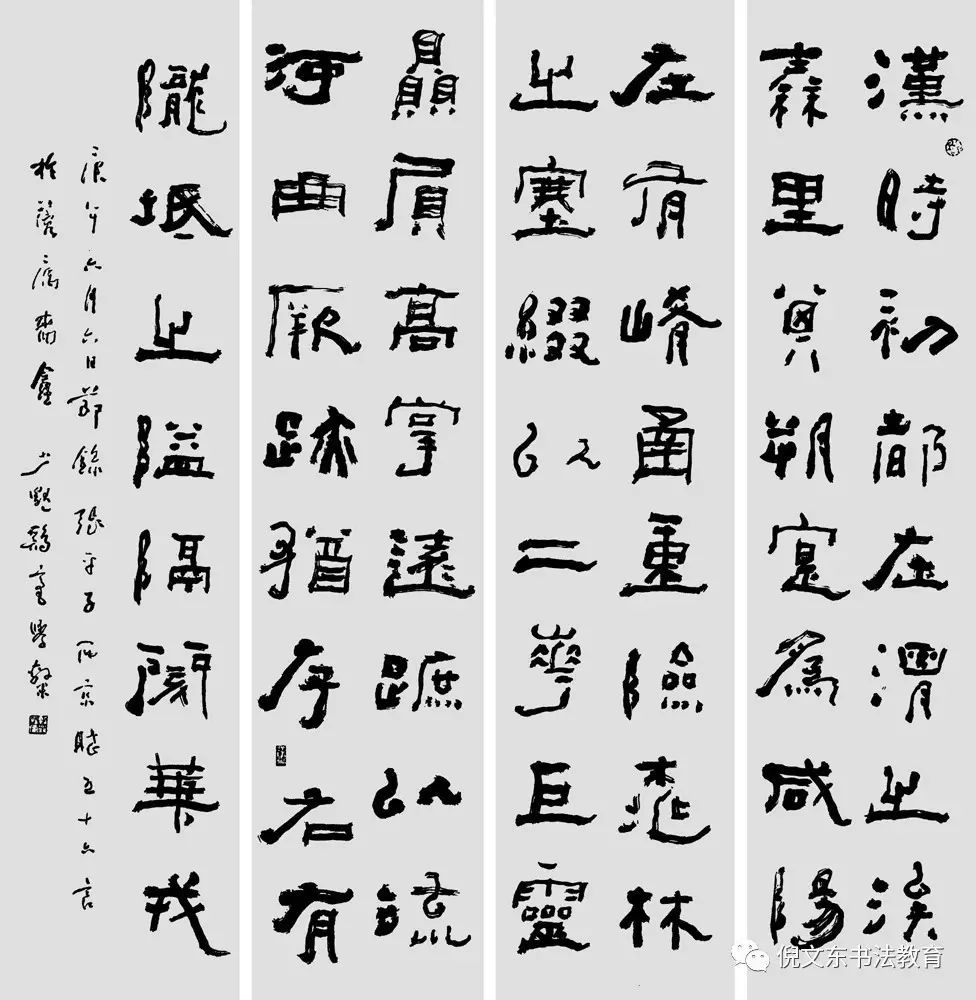 漢時初都在渭之涘
秦里其朔寔爲咸陽
左有崤函重險桃林
之塞綴以二華巨靈
贔屓高掌遠蹠以流
河曲厥跡猶存右有
隴坻之隘隔閡華戎
六月六日節錄張平子西京賦五十六言
倪文东书法教育